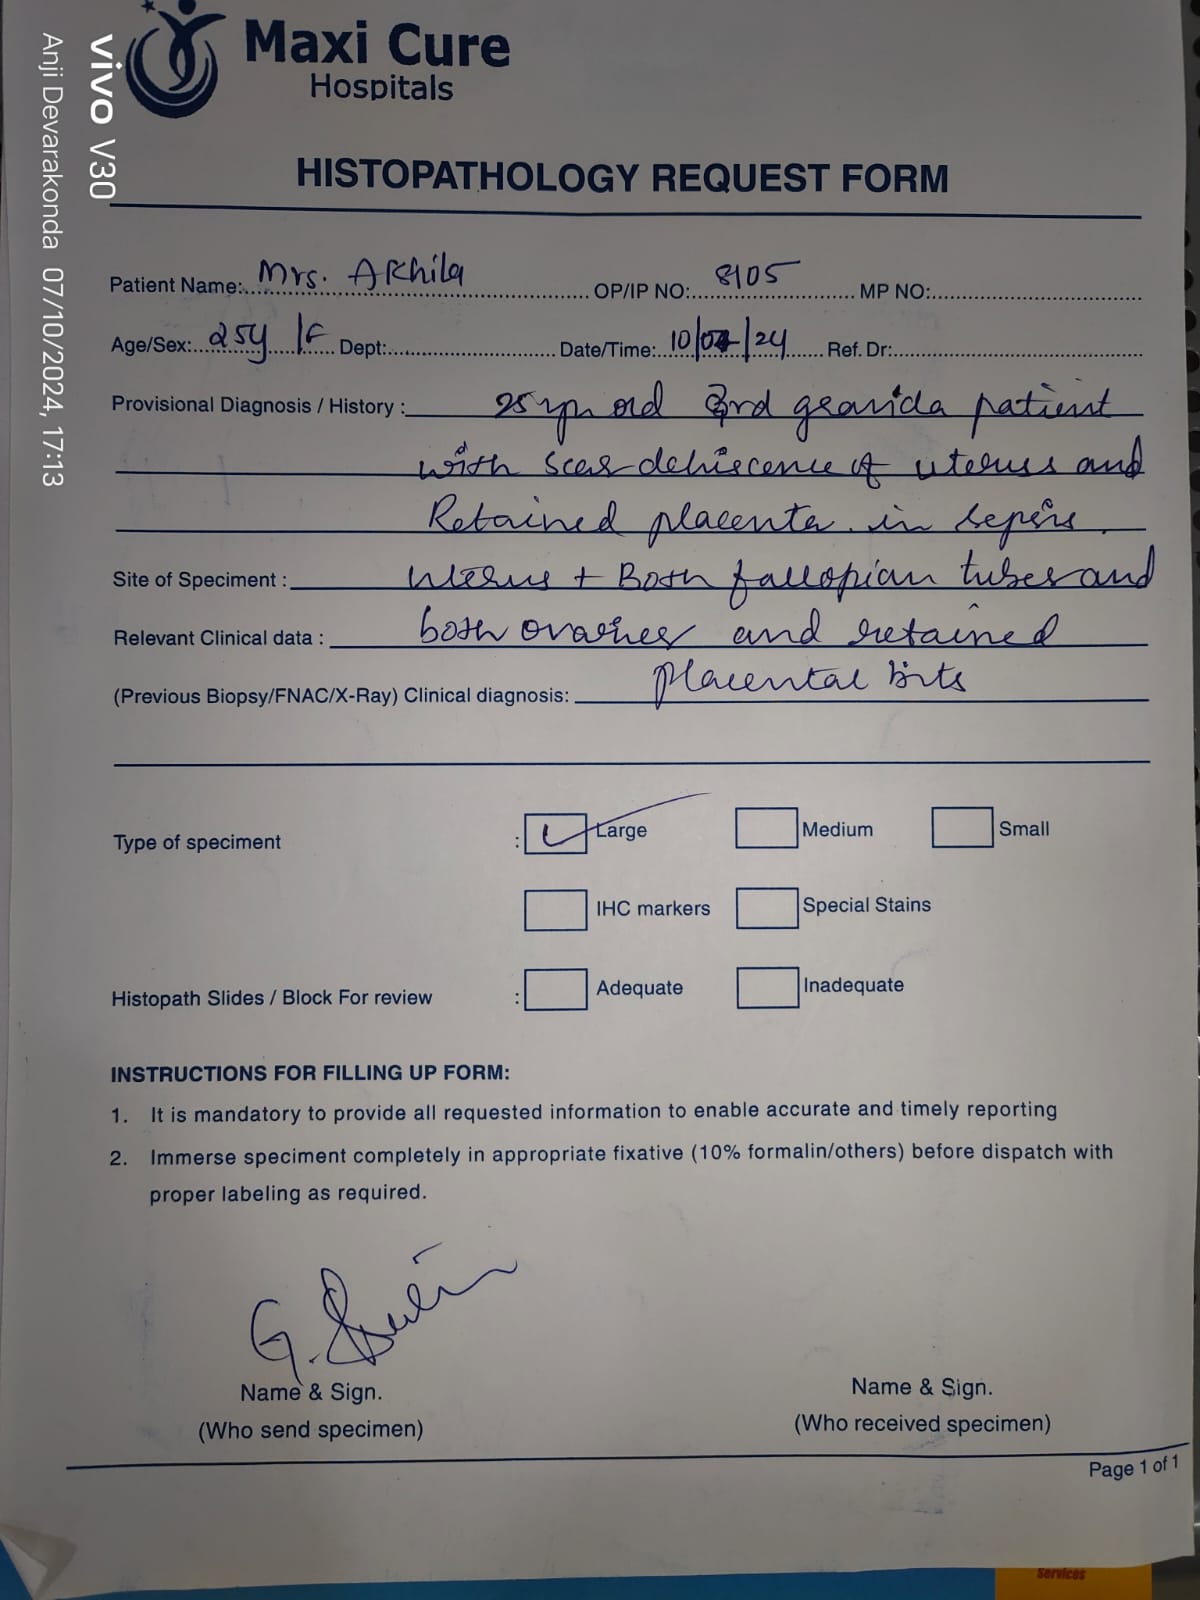 Maxi Cure
Hospitals
HISTOPATHOLOGY REQUEST FORM
Patient Name: Mrs. Akhila OP/IP NO: 8105 MP NO:
Age/Sex: 25y /F Dept: Date/Time: 10/07/24 Ref. Dr:
Provisional Diagnosis / History : 25 yr old 3rd gravida patient
with scar dehiscence of uterus and
Retained placenta in sepsis.
Site of Speciment : Uterus + Both fallopian tubes and
Relevant Clinical data : both ovaries and retained
(Previous Biopsy/FNAC/X-Ray) Clinical diagnosis: placental bits
Type of speciment : Large Medium Small
IHC markers Special Stains
Histopath Slides / Block For review : Adequate Inadequate
INSTRUCTIONS FOR FILLING UP FORM:
1. It is mandatory to provide all requested information to enable accurate and timely reporting
2. Immerse speciment completely in appropriate fixative (10% formalin/others) before dispatch with
proper labeling as required.
G.
Name & Sign. Name & Sign.
(Who send specimen) (Who received specimen)
Page 1 of 1
Services
vivo V30
Anji Devarakonda 07/10/2024, 17:13